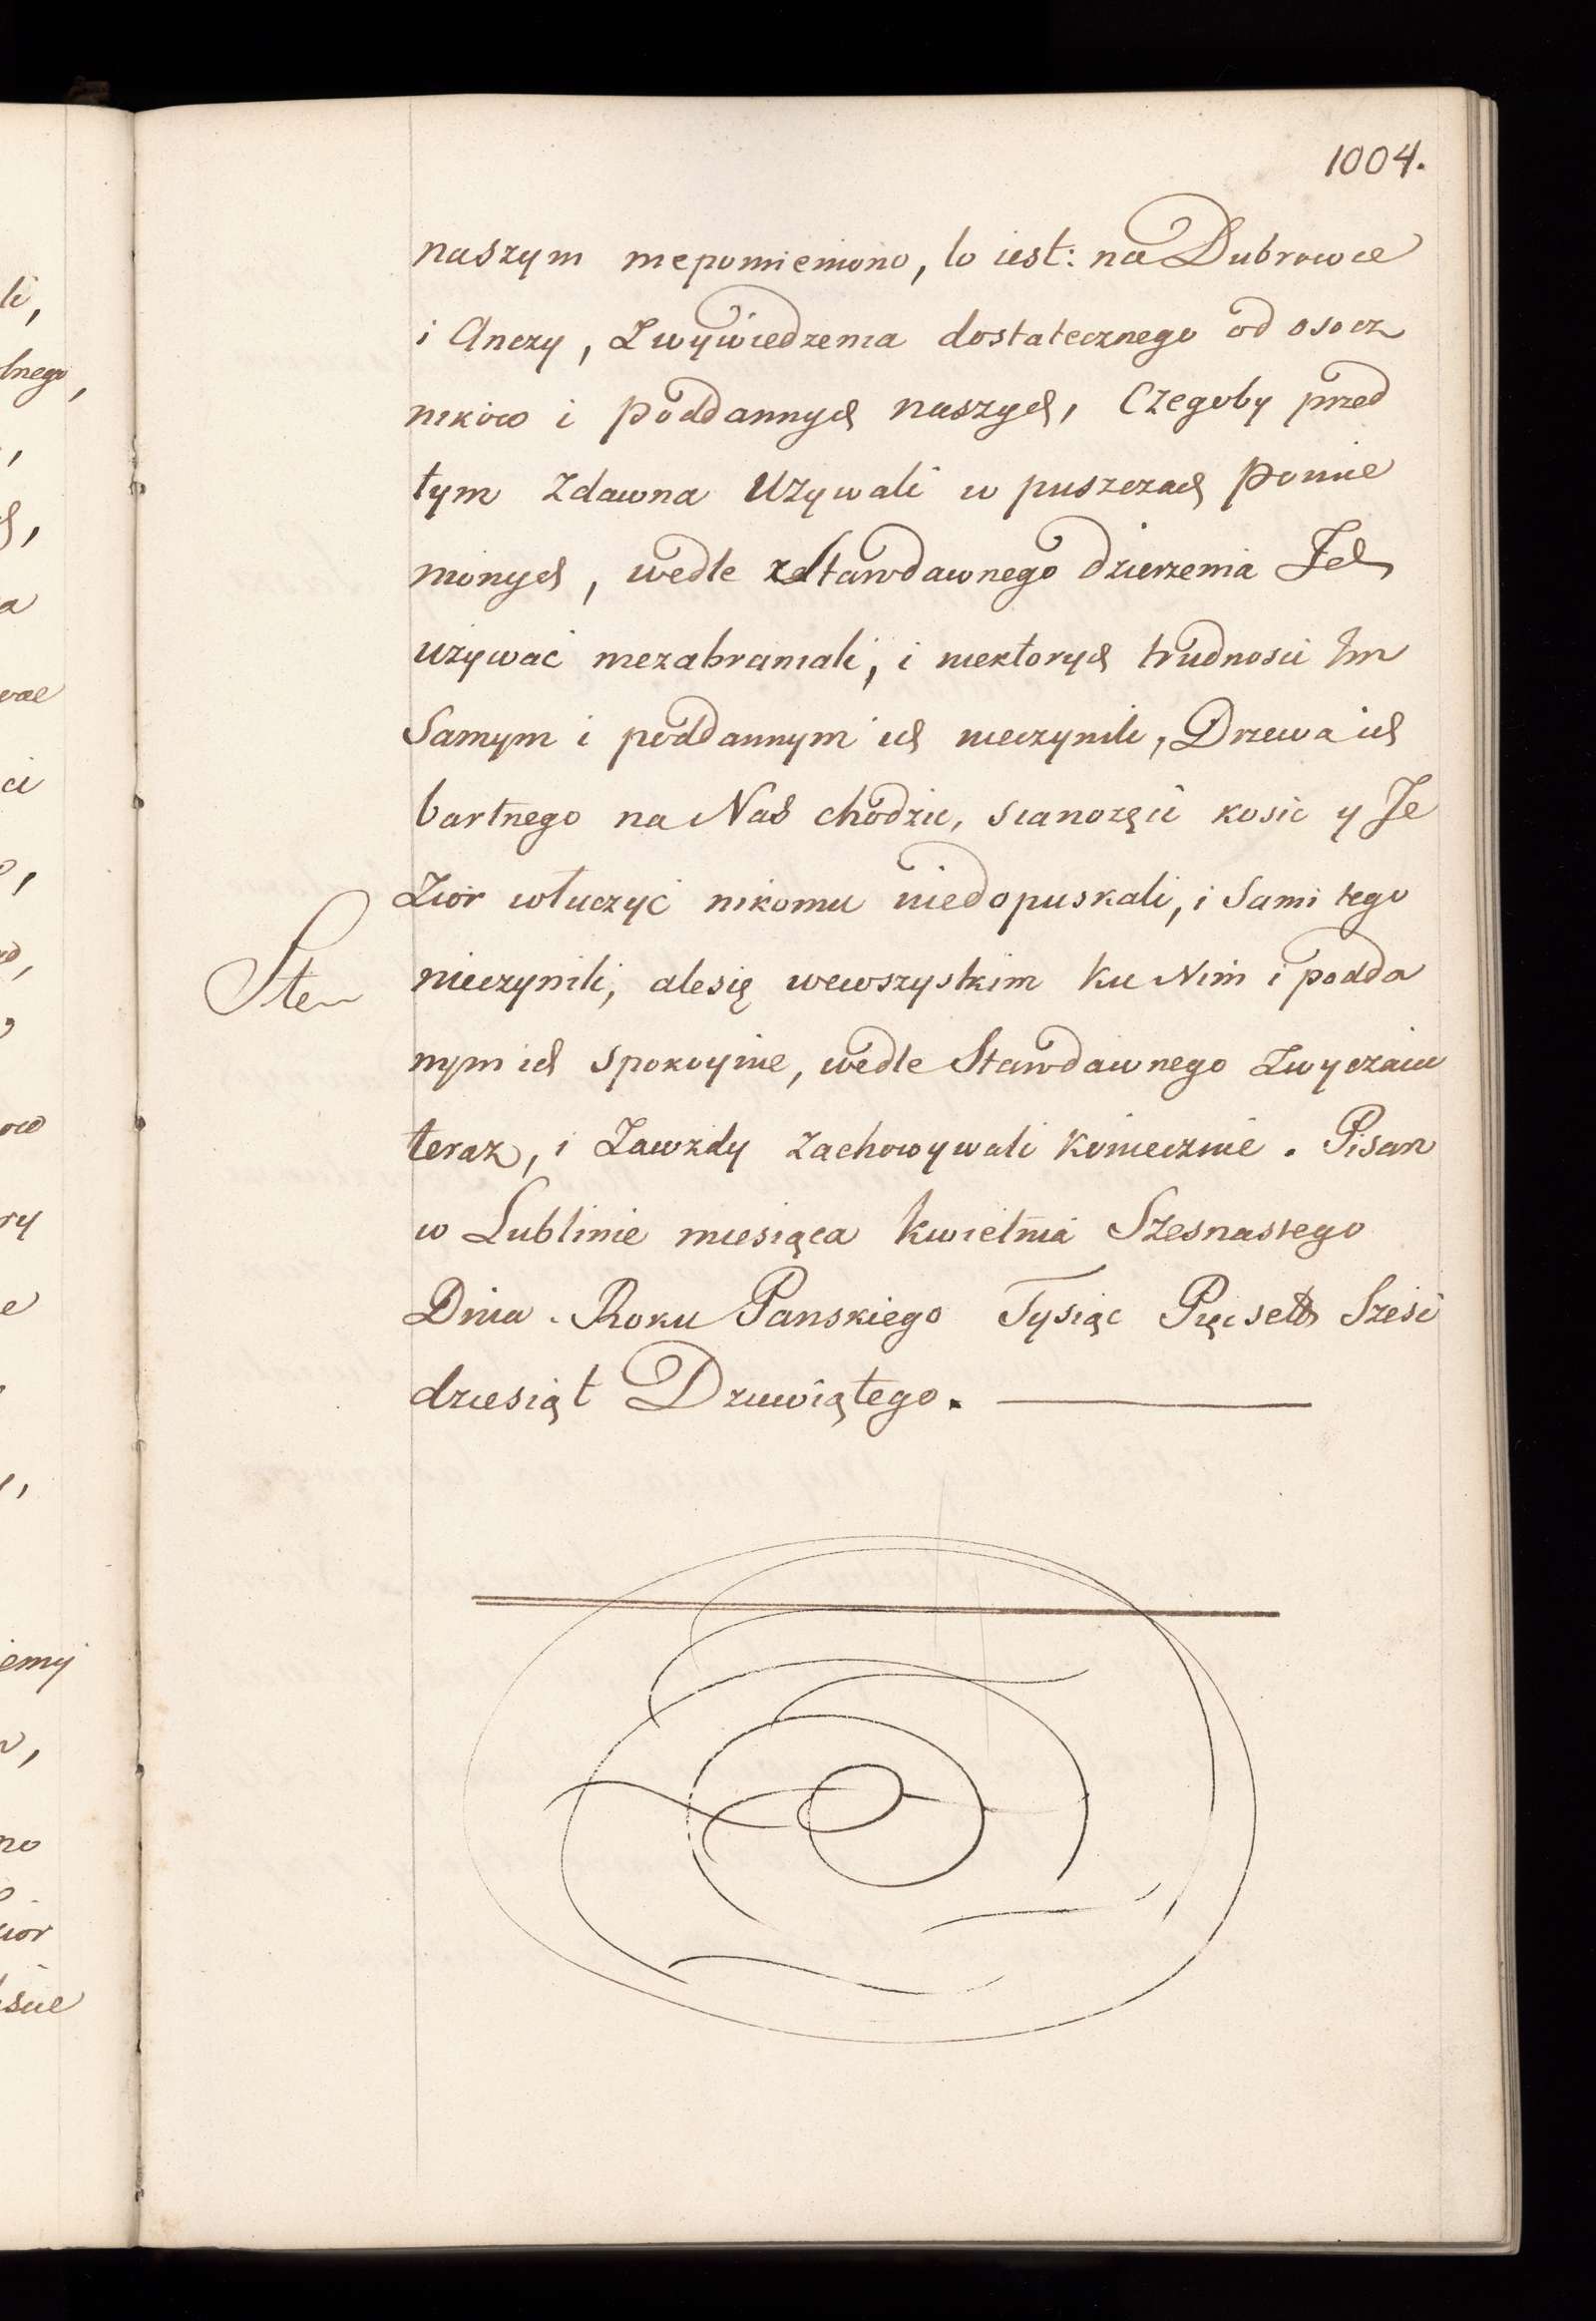 1004.
naszym niepomieniono, to iest: na Dubrowce
i Anczy, Z wywiedzenia dostatecznego od osocz
ników i poddannych naszych, Czegoby przed
tym Zdawna Używali w puszczach Pomie
nionych, wedle Starodawnego dzierżenia Ich
używać niezabraniali, i niektórych trudności Im
Samym i poddannym ich nieczynili, Drzewa ich
bartnego na Nas chodzić, sianożęci kosic y Je
Zior włuczyć nikomu niedopuskali, i Sami tego
nieczynili, alesię wewszystkim Ku Nim i podda
nym ich spokoynie, wedle Starodawnego Zwyczaiu
teraz, i Zawzdy Zachowywali Koniecznie. Pisan
w Lublinie miesiąca Kwietnia Szesnastego
Dnia. Roku Panskiego Tysiąc Pięcset Szesć
dziesiąt Dziewiątego.